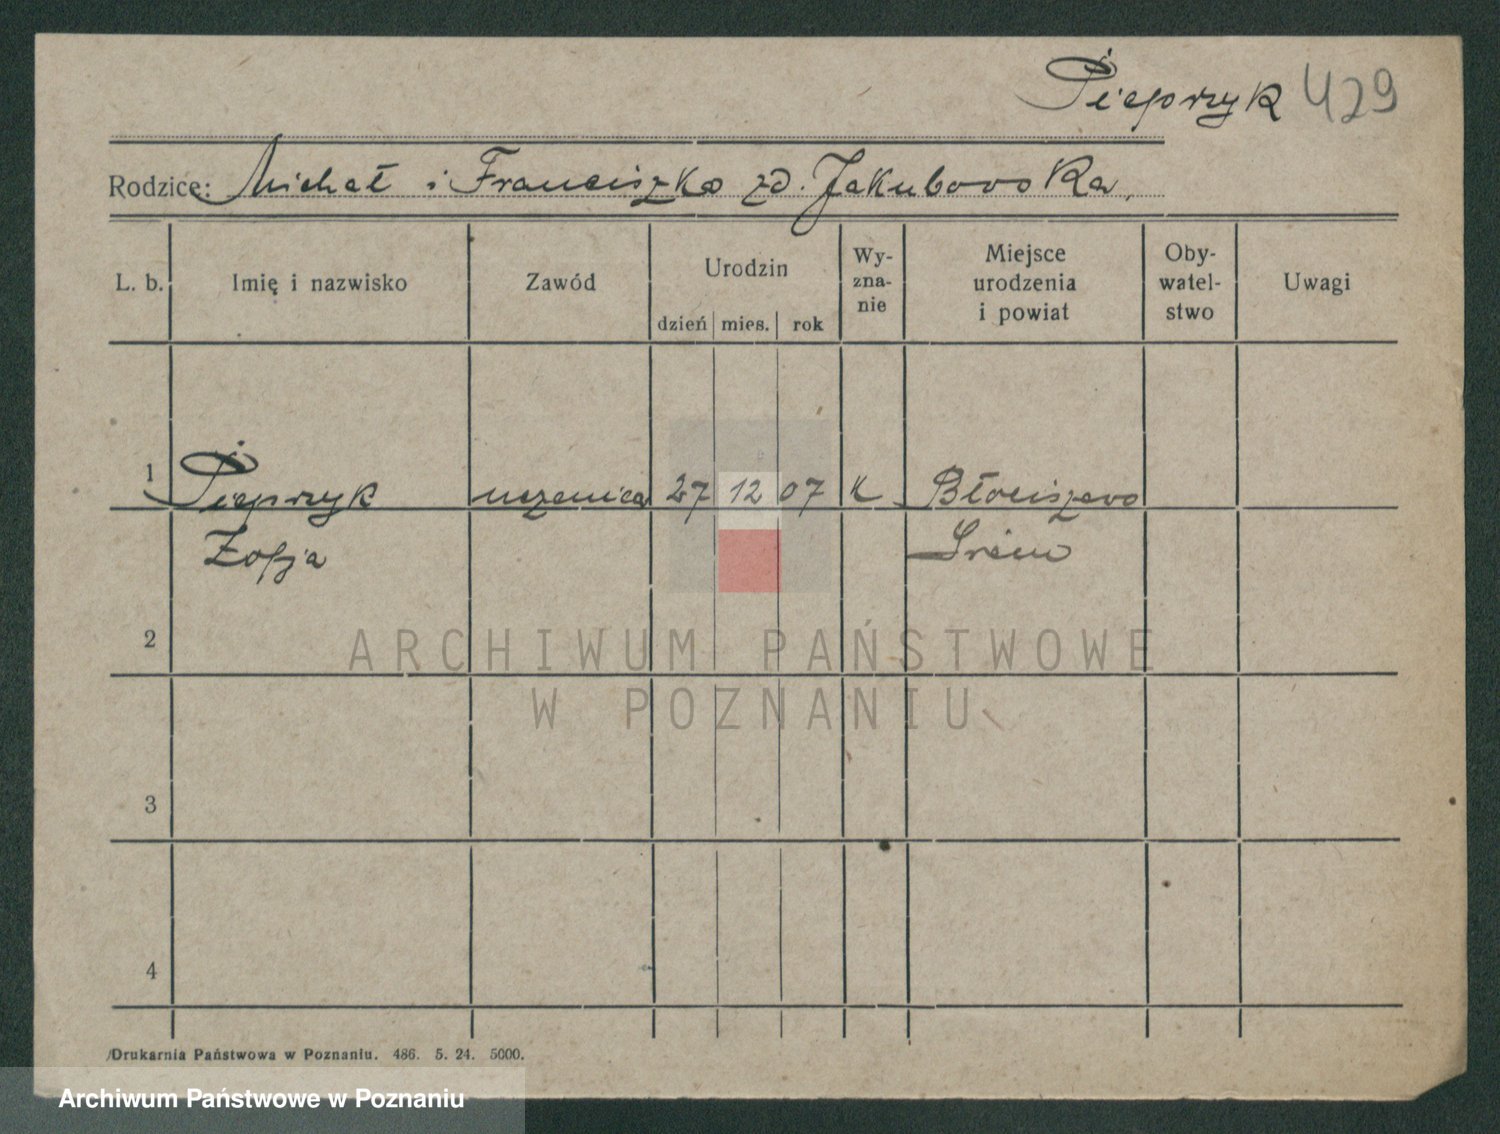 Pieprzyk 429
Rodzice: Michał i Franciszka zd. Jakubowska,
L. b. Imię i nazwisko Zawód Urodzin dzień mies. rok Wy-zna-nie Miejsce urodzenia i powiat Oby-watel-stwo Uwagi
1 Pieprzyk uczenica 27 12 07 k Błociszewo
Zofja Śrem
2
ARCHIWUM PAŃSTWOWE
W POZNANIU
3
4
Drukarnia Państwowa w Poznaniu. 486. 5. 24. 5000.
Archiwum Państwowe w Poznaniu